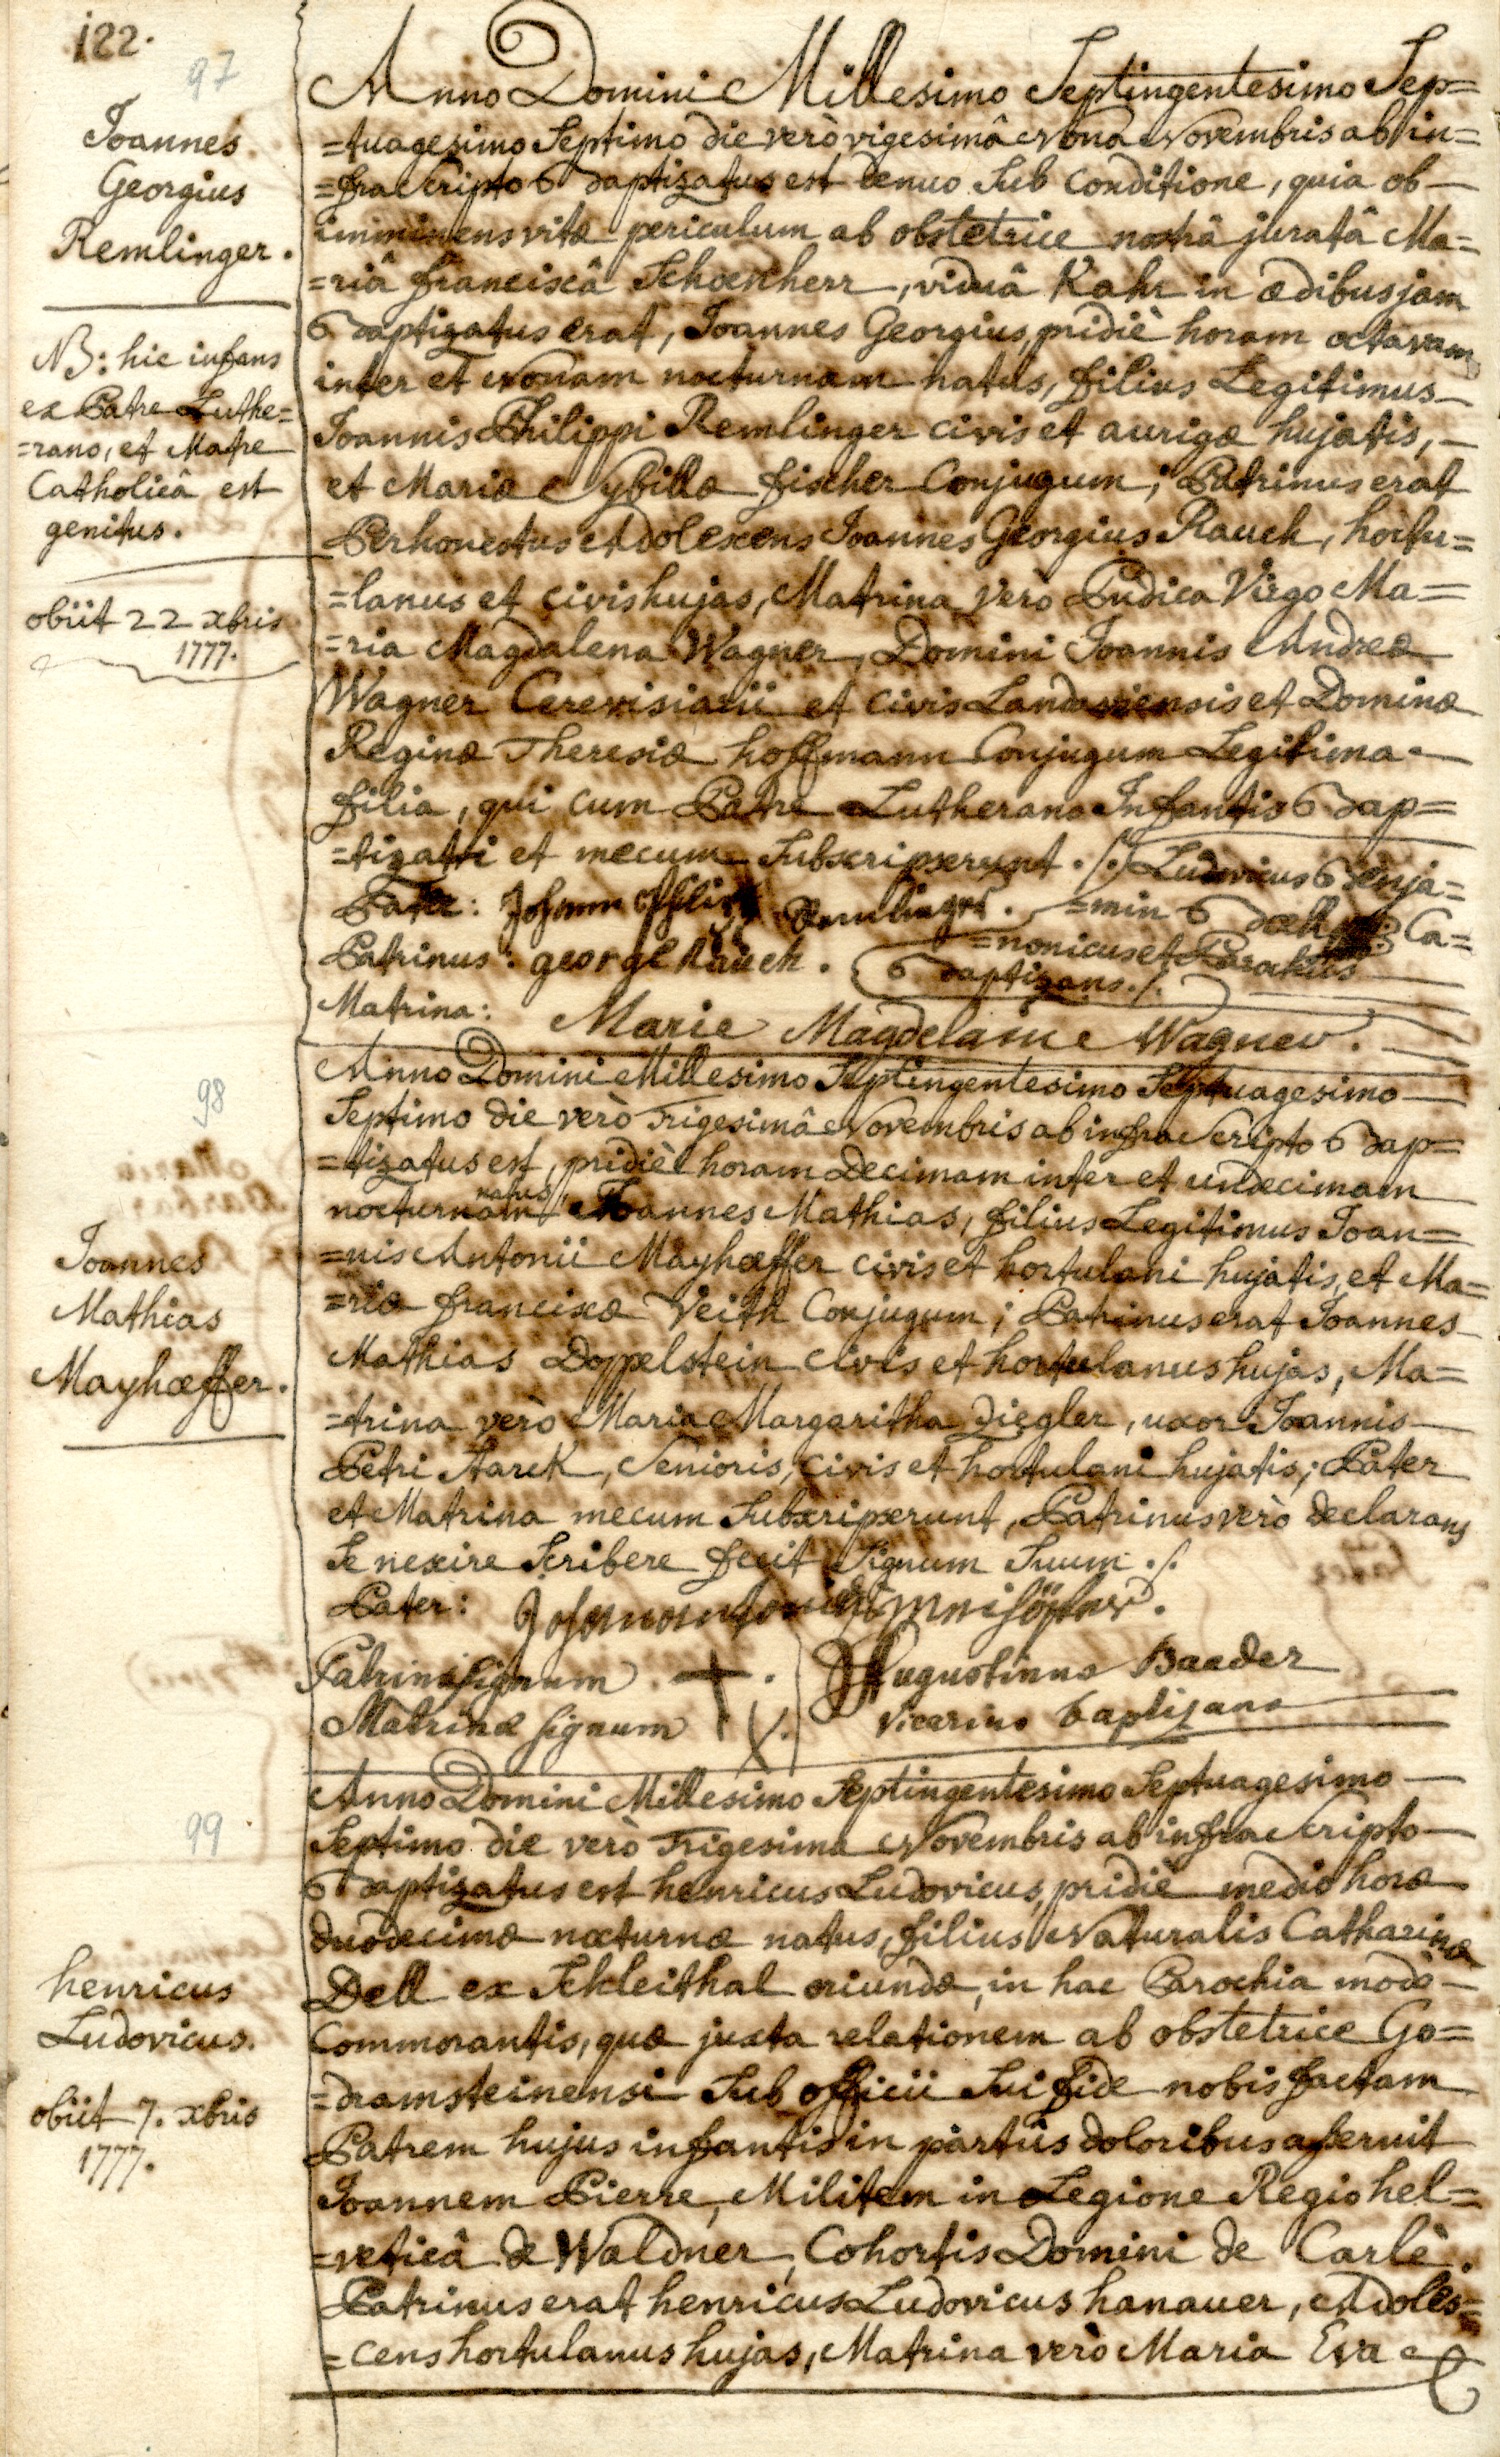 122.
97
Joannes
Georgius
Remlinger.
NB: hic infans
ex Patre Luthe=
=rano, et Matre
Catholicâ est
genitus.
obiit 22 xbris
1777.
Anno Domini Millesimo Septingentesimo Sep=
=tuagesimo Septimo die verò vigesimâ Nona Novembris ab in=
=fraScripto Baptizatus est denuo Sub Conditione, quia ob
imminens vitæ periculum ab obstetrice nostrâ juratâ Ma=
=riâ franciscâ Schoenherr, viduâ Kahr in ædibus jam
Baptizatus erat, Joannes Georgius, pridiè horam octavam
inter et Nonam nocturnam natus, filius Legitimus
Joannis Philippi Remlinger civis et aurigæ hujatis,
et Mariæ Sybillæ fischer Conjugum; Patrinus erat
Perhonestus Adolescens Joannes Georgius Rauch, hortu=
=lanus et civis hujas, Matrina verò Pudica Virgo Ma=
=ria Magdalena Wagner, Domini Joannis Andreæ
Wagner Cerevisiarii et civis Landaviensis et Dominæ
Reginæ Theresiæ hoffmann Conjugum Legitima
filia, qui cum Patre Lutherano Infantis Bap=
=tizati et mecum Subscripserunt ./. Ludovicus Benja=
Pater: Johann Philipp Remlinger. =min Ca=
=nonicus et Parochus
Patrinus: georg Rauch. Baptizans ./.
Matrina: Marie Magdelaine Wagner.
98
Joannes
Mathias
Mayhœffer.
Anno Domini Millesimo Septingentesimo Septuagesimo
Septimo die verò Trigesimâ Novembris ab infraScripto Bap=
=tizatus est, pridiè horam Decimam inter et undecimam
nocturnam natus, Joannes Mathias, filius Legitimus Joan=
=nis Antonii Mayhœffer civis et hortulani hujatis, et Ma=
=riæ franciscæ Veith Conjugum; Patrinus erat Joannes
Mathias Doppelstein civis et hortulanus hujas, Ma=
=trina verò Maria Margaritha Ziegler, uxor Joannis
Petri Starck, Senioris, civis et hortulani hujatis; Pater
et Matrina mecum Subscripserunt, Patrinus verò declarans
Se nescire Scribere fecit Signum Suum ./.
Pater:
Patrini signum + . Augustinus Baader
Matrinæ signum X. Vicarius baptizans
99
henricus
Ludovicus.
obiit 7. xbris
1777.
Anno Domini Millesimo Septingentesimo Septuagesimo
Septimo die verò Trigesima Novembris ab infraScripto
Baptizatus est henricus Ludovicus, pridiè medio horæ
duodecimæ nocturnæ natus, filius Naturalis Catharinæ
Dell ex Schleithal oriundæ, in hac Parochia modò
Commorantis, quæ juxta relationem ab obstetrice Go=
=dramsteinensi Sub officii Sui fide nobis factam
Patrem hujus infantis in partûs doloribus asseruit
Joannem Pierre, Militem in Legione Regio hel=
=veticâ de Waldner, Cohortis Domini de Carlè.
Patrinus erat henricus Ludovicus hanauer, Adoles=
=cens hortulanus hujas, Matrina verò Maria Eva